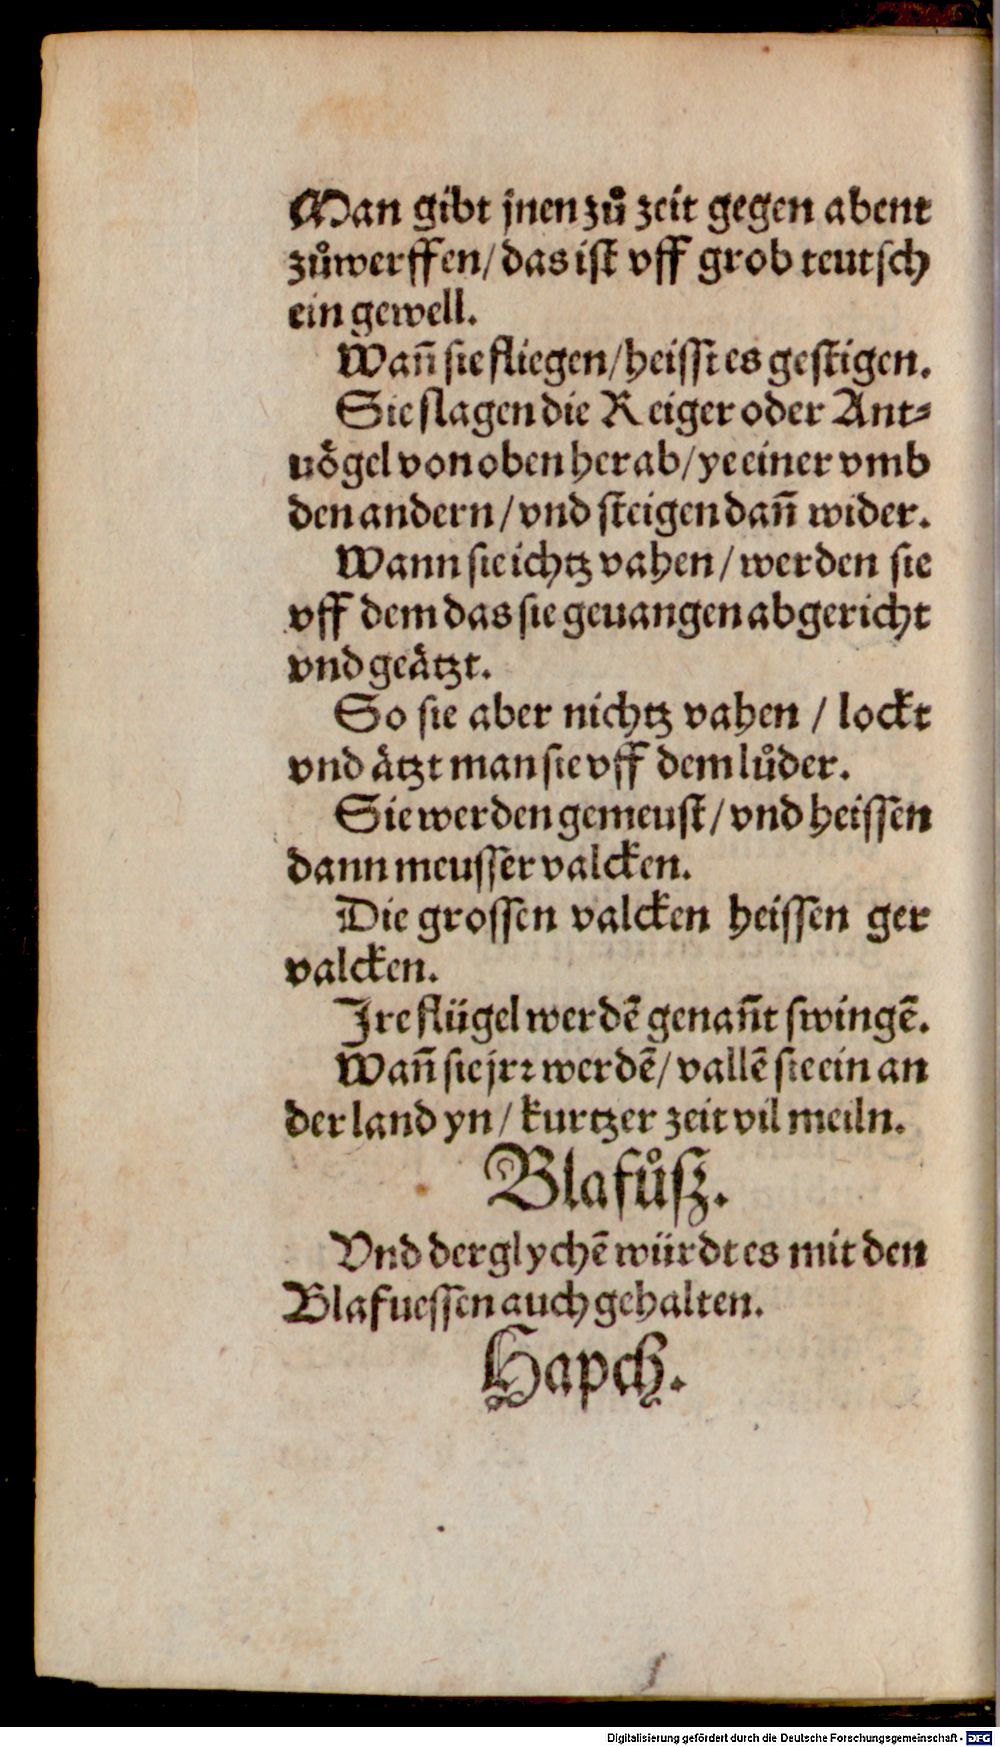 Man gibt jnen zuͦ zeit gegen abent
zuͦwerffen/ das ist vff grob teutsch
ein gewell.
Wañ sie fliegen/ heisst es gestigen.
Sie slagen die Reiger oder Ant⸗
uoͤgel von oben herab/ ye einer vmb
den andern/ vnd steigen dañ wider.
Wann sie ichtz vahen/ werden sie
vff dem das sie geuangen abgericht
vnd geaͤtzt.
So sie aber nichtz vahen / lockt
vnd aͤtzt man sie vff dem luͦder.
Sie werden gemeust/ vnd heissen
dann meusser valcken.
Die grossen valcken heissen ger
valcken.
Jre flügel werdē genañt swingē.
Wañ sie jrꝛ werdē/ vallē sie ein an
der land yn/ kurtzer zeit vil meiln.
Blafuͦſz.
Vnd derglychē würdt es mit den
Blafuessen auch gehalten.
Hapch.
Digitalisierung gefördert durch die Deutsche Forschungsgemeinschaft - DFG